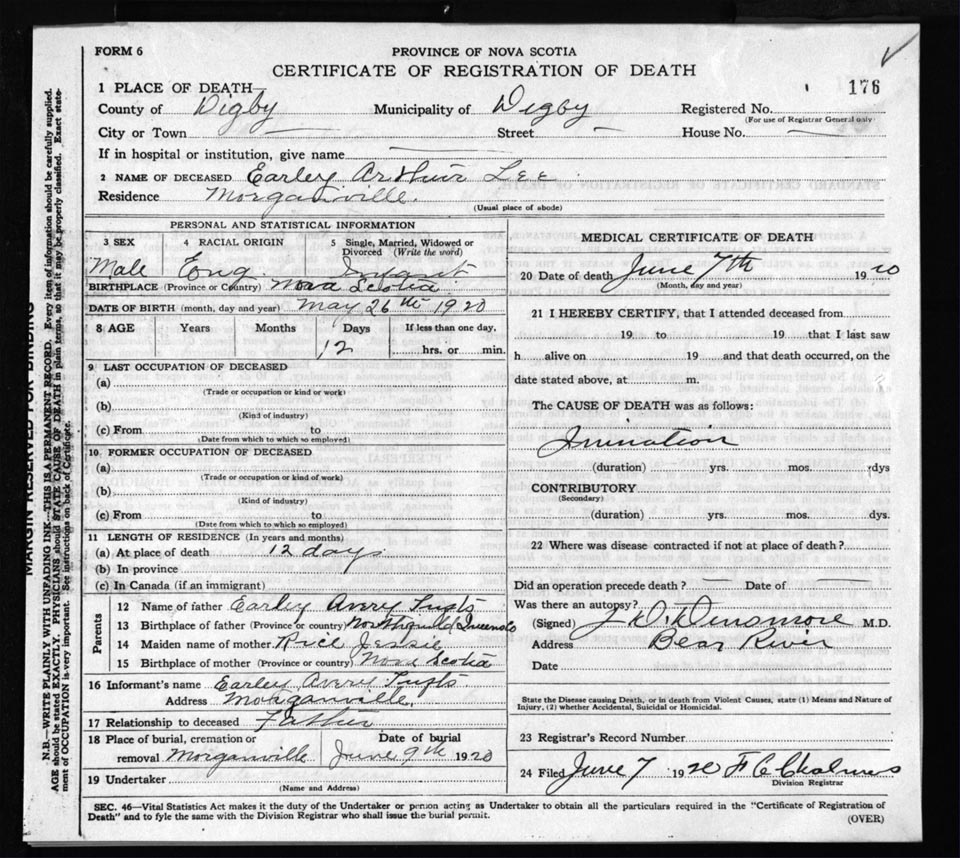 FORM 6
PROVINCE OF NOVA SCOTIA
CERTIFICATE OF REGISTRATION OF DEATH
176
1 PLACE OF DEATH—
County of Digby Municipality of Digby Registered No.
(For use of Registrar General only)
City or Town — Street — House No. —
If in hospital or institution, give name —
2 NAME OF DECEASED Earley Arthur Lee
Residence Morganville.
(Usual place of abode)
PERSONAL AND STATISTICAL INFORMATION
3 SEX 4 RACIAL ORIGIN 5 Single, Married, Widowed or Divorced (Write the word)
Male Eng. Infant
BIRTHPLACE (Province or Country) Nova Scotia
DATE OF BIRTH (month, day and year) May 26th 1920
8 AGE Years Months Days If less than one day,
12 hrs. or min.
9 LAST OCCUPATION OF DECEASED
(a)
(Trade or occupation or kind of work)
(b)
(Kind of industry)
(c) From to
(Date from which to which so employed)
10 FORMER OCCUPATION OF DECEASED
(a)
(Trade or occupation or kind of work)
(b)
(Kind of industry)
(c) From to
(Date from which to which so employed)
11 LENGTH OF RESIDENCE (In years and months)
(a) At place of death 12 days
(b) In province
(c) In Canada (if an immigrant)
Parents
12 Name of father Earley Avery
13 Birthplace of father (Province or country)
14 Maiden name of mother Rice Jessie
15 Birthplace of mother (Province or country) Nova Scotia
16 Informant's name Earley Avery
Address Morganville.
17 Relationship to deceased Father
18 Place of burial, cremation or removal Date of burial
Morganville June 9th 1920
19 Undertaker
(Name and Address)
MEDICAL CERTIFICATE OF DEATH
20 Date of death June 7th 1920
(Month, day and year)
21 I HEREBY CERTIFY, that I attended deceased from
19 to 19 that I last saw
h alive on 19 and that death occurred, on the
date stated above, at m.
The CAUSE OF DEATH was as follows:
Inination
(duration) yrs. mos. dys
CONTRIBUTORY
(Secondary)
(duration) yrs. mos. dys.
22 Where was disease contracted if not at place of death?
Did an operation precede death? — Date of —
Was there an autopsy?
(Signed) Dinsmore M.D.
Address Bear River
Date
State the Disease causing Death, or in death from Violent Causes, state (1) Means and Nature of
Injury, (2) whether Accidental, Suicidal or Homicidal.
23 Registrar's Record Number
24 Filed June 7 1920 F C Chalmers
Division Registrar
SEC. 46—Vital Statistics Act makes it the duty of the Undertaker or person acting as Undertaker to obtain all the particulars required in the "Certificate of Registration of
Death" and to fyle the same with the Division Registrar who shall issue the burial permit.
(OVER)
MARGIN RESERVED FOR BINDING
N.B.—WRITE PLAINLY WITH UNFADING INK—THIS IS A PERMANENT RECORD. Every item of information should be carefully supplied.
AGE should be stated EXACTLY. PHYSICIANS should STATE CAUSE OF DEATH in plain terms, so that it may be properly classified. Exact state-
ment of OCCUPATION is very important. See instructions on back of Certificate.